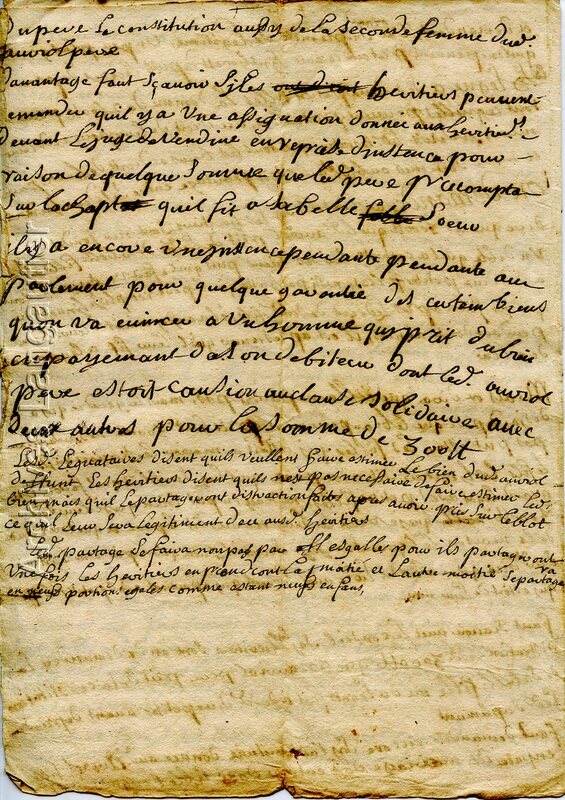 du pere le constitution au pix de la seconde femme dud.
auriol pere
davantage faut sçavoir si les ont droit heritiers peuvent
emander quil y a une assignation donnée aux heritiers
devant le juge de vendine en reprise dinstence pour
raison de quelque somme que led. pere
sur la chapt quil fit a sa belle soeur
il y a encore une instence pendante pendante au
parlement pour quelque garantie des certains biens
quon va evincer a un homme qui prit du bien
en payemant de son debiteur dont led. auriol
pere estoit causion au clause solidaire avec
deux autres pour la somme de 300 ll
Lesd. Legnataires disent quils veullent faire estimer le bien dud. auriol
defunt. Les heritiers disent quils nest pas necessaire de faire estimer led.
bien mais quil le partageront distraction faite apres avoir pris sur le blot
ce quil leur sera legitiment deu ausd. heritiers
partage se faira non pas par esgalles pour ils partageront
une fois les heritiers en prendront la moitié et l'autre moitié se partagera
en neufs portions egales comme estant neufs enfans,
Archives Largantier